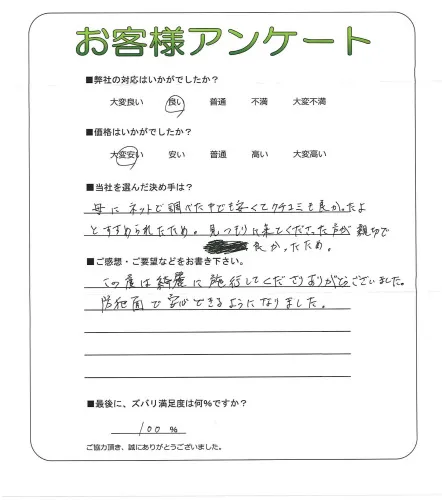 お客様アンケート
■弊社の対応はいかがでしたか?
大変良い 良い 普通 不満 大変不満
■価格はいかがでしたか?
大変安い 安い 普通 高い 大変高い
■当社を選んだ決め手は?
母に ネットで調べた中でも安くてクチコミも良かったよ
とすすめられたため。見つもりに来てくださった方が親切で
良かったため。
■ご感想・ご要望などをお書き下さい。
この度は綺麗に施行してくださりありがとうございました。
防犯面で安心できるようになりました。
■最後に、ズバリ満足度は何%ですか?
100 %
ご協力頂き、誠にありがとうございました。